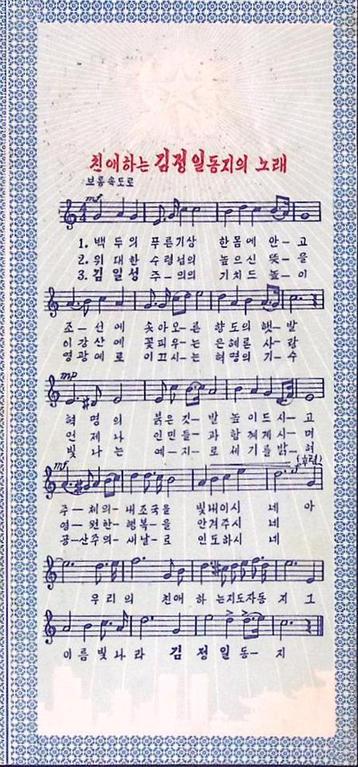 친애하는 김정일동지의 노래
보통속도로
mf
1. 백 두의 푸른기상 한몸에 안-고
2. 위 대한 수령님의 높으신 뜻-을
3. 김 일성 주-의의 기치드 높-이
조-선에 솟아오-른 향도의 햇-발
이강산에 꽃피우-는 은혜론 사-랑
영광에로 이끄시-는 혁명의 기-수
mp
혁명의 붉은깃-발 높이드시-고
언제나 인민들-과 함께계시-며
빛나는 예-지-로 세기를밝-혀
mf
주-체의-내조국을 빛내이시 네 아
영-원한-행복-을 안겨주시 네
공-산주의-새날-로 인도하시 네
우리의 친애 하 는지도자동 지 그
이름빛나라 김정일동-지